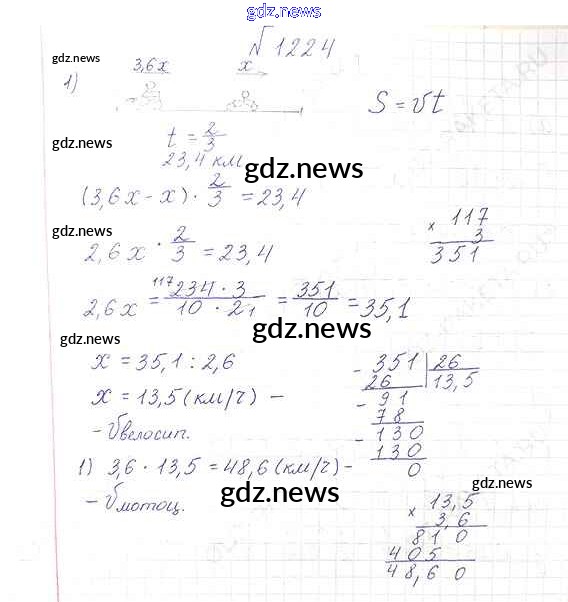 gdz.news
№1224
gdz.news
1) 3,6x x
S = vt
gdz.news
t = 2/3
23,4 км
gdz.news
(3,6x - x) · 2/3 = 23,4
gdz.news
2,6x · 2/3 = 23,4
× 117
3
351
2,6x = 117 234 · 3 / 10 · 2 1 = 351/10 = 35,1
gdz.news
gdz.news
x = 35,1 : 2,6
x = 13,5 (км/ч) -
- Vвелосип.
- 351 | 26
26 13,5
- 91
78
- 130
130
0
gdz.news
1) 3,6 · 13,5 = 48,6 (км/ч) -
- Vмотоц.
gdz.news
gdz.news
gdz.news
× 13,5
3,6
810
405
48,60